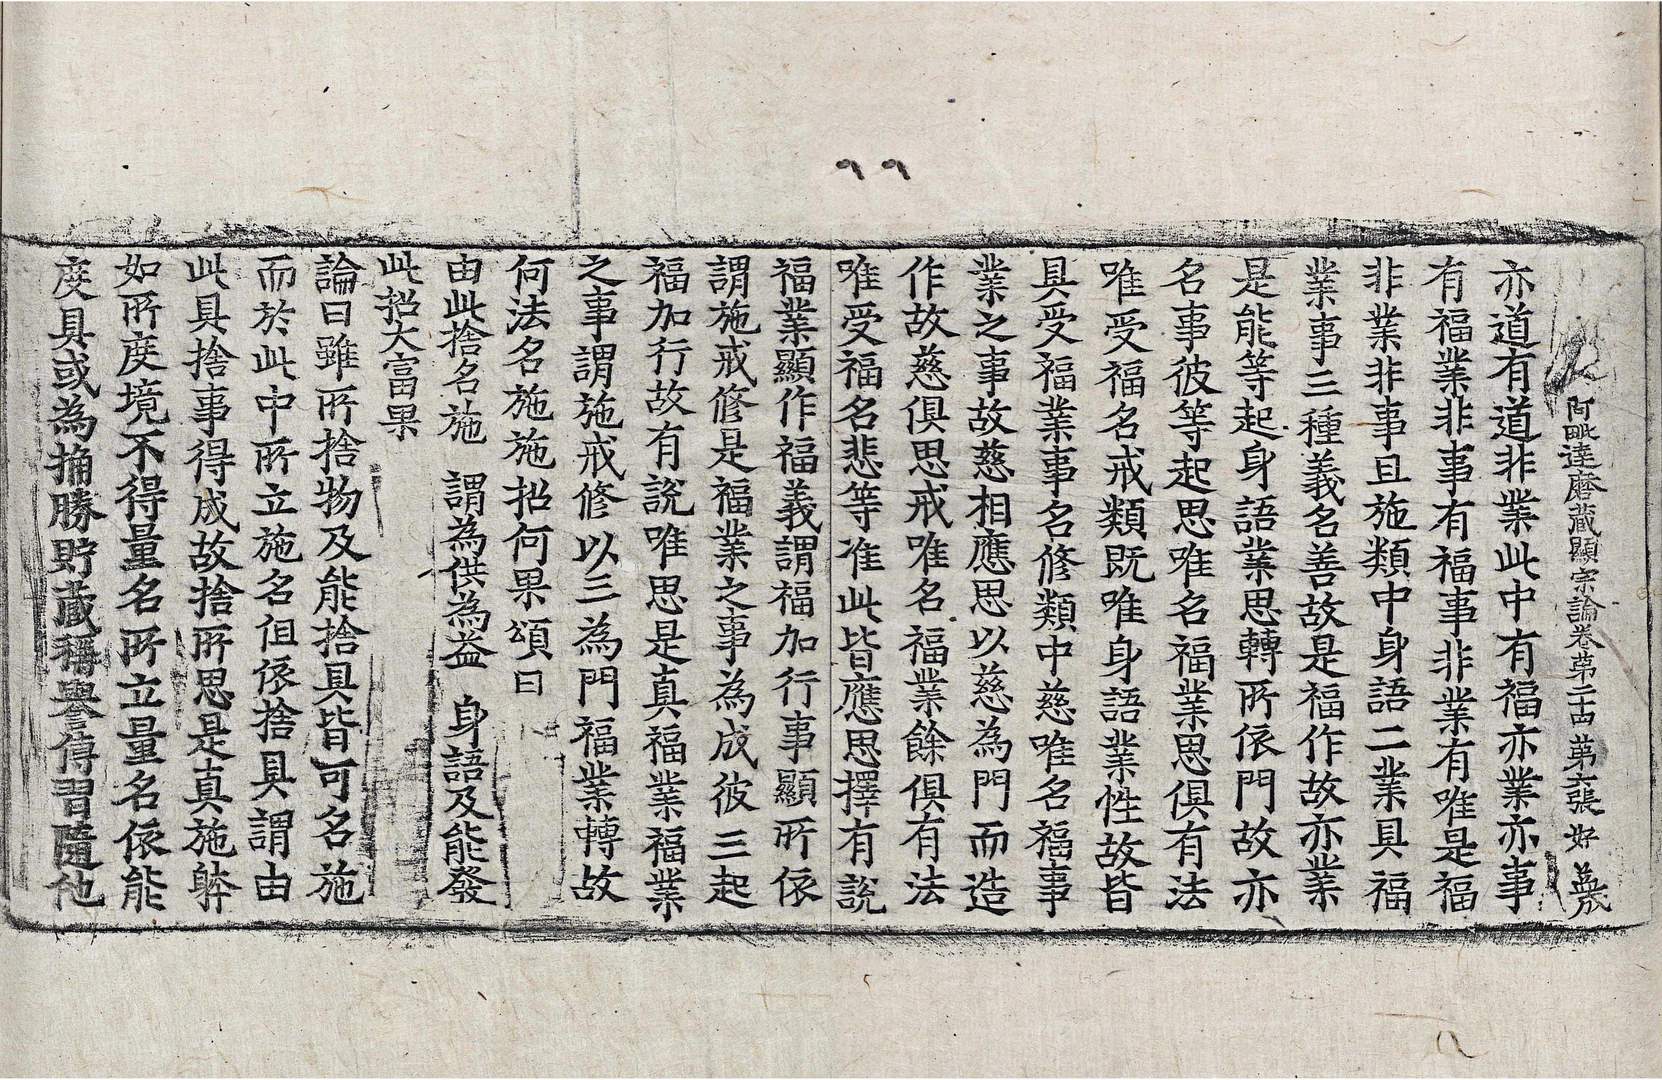 阿毗達磨藏顯宗論卷第二十四 第六張 好
亦道有道非業此中有福亦業亦事
有福業非事有福事非業有唯是福
非業非事且施類中身語二業具福
業事三種義名善故是福作故亦業
是能等起身語業思轉所依門故亦
名事彼等起思唯名福業思俱有法
唯受福名戒類既唯身語業性故皆
具受福業事名修類中慈唯名福事
業之事故慈相應思以慈為門而造
作故慈俱思戒唯名福業餘俱有法
唯受福名悲等准此皆應思擇有說
福業顯作福義謂福加行事顯所依
謂施戒修是福業之事為成彼三起
福加行故有說唯思是真福業福業
之事謂施戒修以三為門福業轉故
何法名施施招何果頌曰
由此捨名施 謂為供為益 身語及能發
此招大富果
論曰雖所捨物及能捨具皆可名施
而於此中所立施名但依捨具謂由
此具捨事得成故捨所思是真施體
如所度境不得量名所立量名依能
度具或為揃勝貯藏稱譽傳習隨他